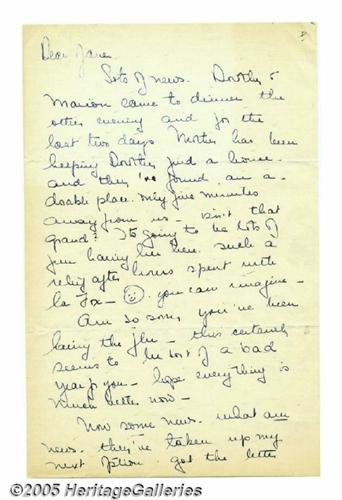 Dear Jane
Lots of news. Dorothy &
Marion came to dinner the
other evening and for the
last two days Mother has been
helping Dorothy find a house.
and they've found an a-
doable place. only five minutes
away from us - isn't that
grand? It's going to be lots of
fun having her here. such a
relief after hours spent with
la Fox - you can imagine -
Am so sorry you've been
having the flu - this certainly
seems to be sort of a bad
year for you - hope everything is
much better now -
Now some news. what am
news. they've taken up my
next option. got the letter
©2005 HeritageGalleries